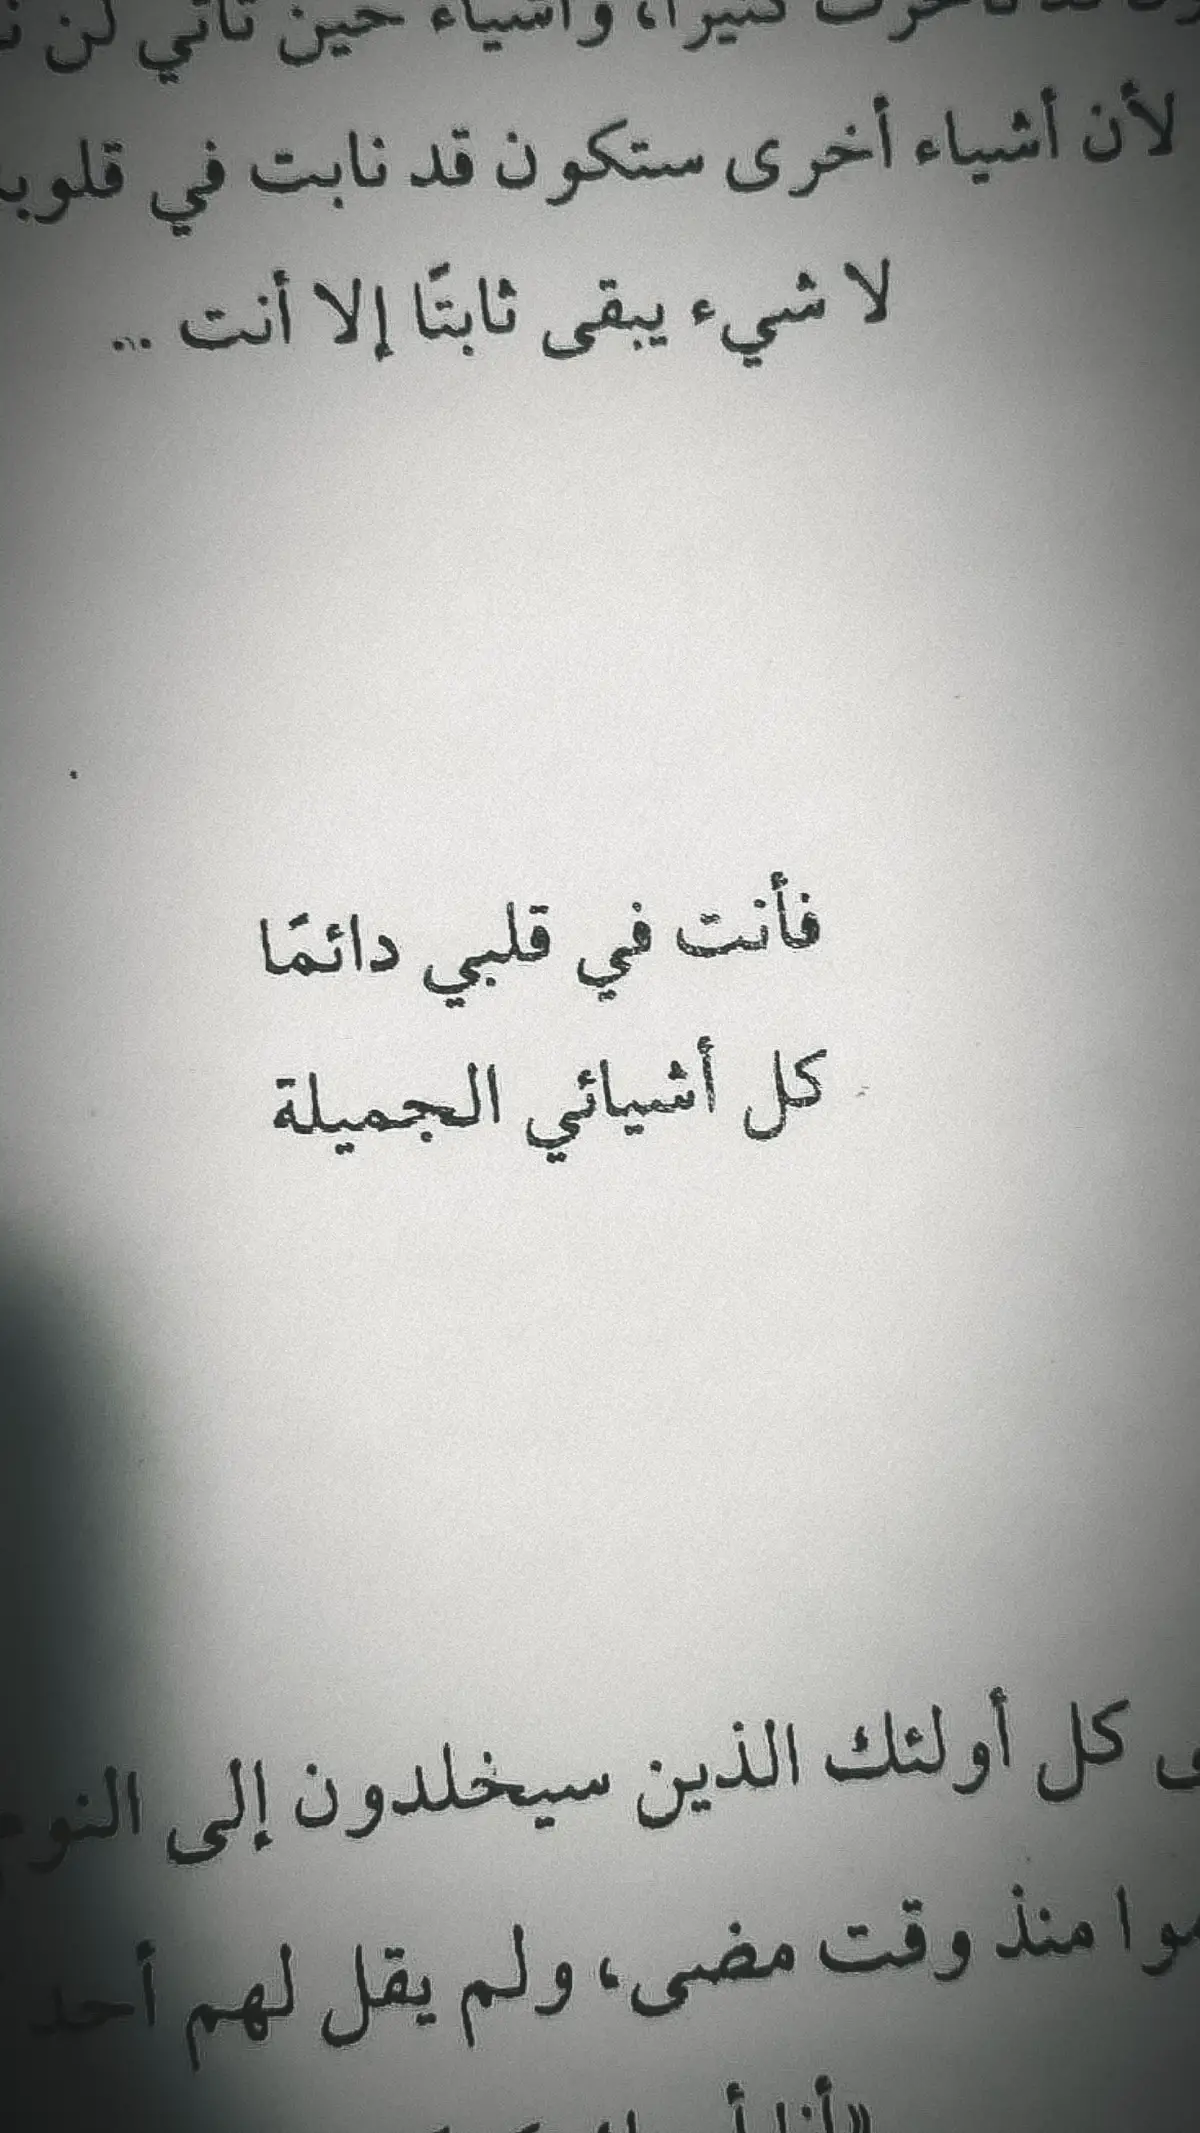 كثيرا، وأشياء حين تأتي لن
لأن أشياء أخرى ستكون قد نابت في
لا شيء يبقى ثابتًا إلا أنت ...
فأنت في قلبي دائمًا
كل أشيائي الجميلة
كل أولئك الذين سيخلدون إلى النوم
منذ وقت مضى، ولم يقل لهم أحد